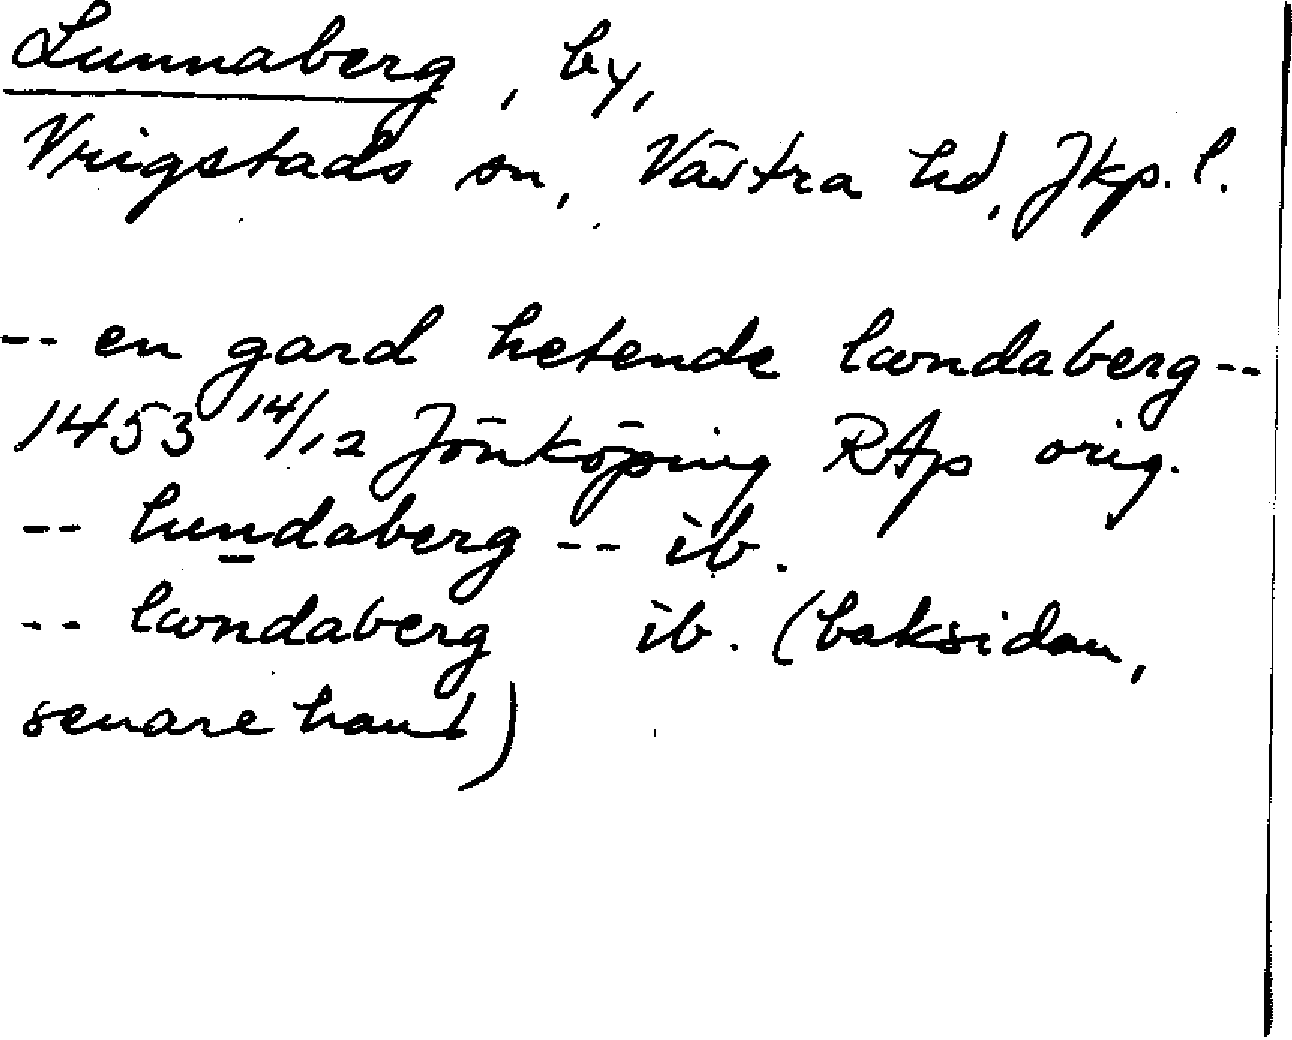 Lunnaberg, by,
Vrigstads sn, Västra hd, Jkp. l.
-- en gard hetende lwndaberg --
1453 14/12 Jönköping RAp orig.
-- lundaberg -- ib.
-- lwndaberg ib. (baksidan,
senare hand)